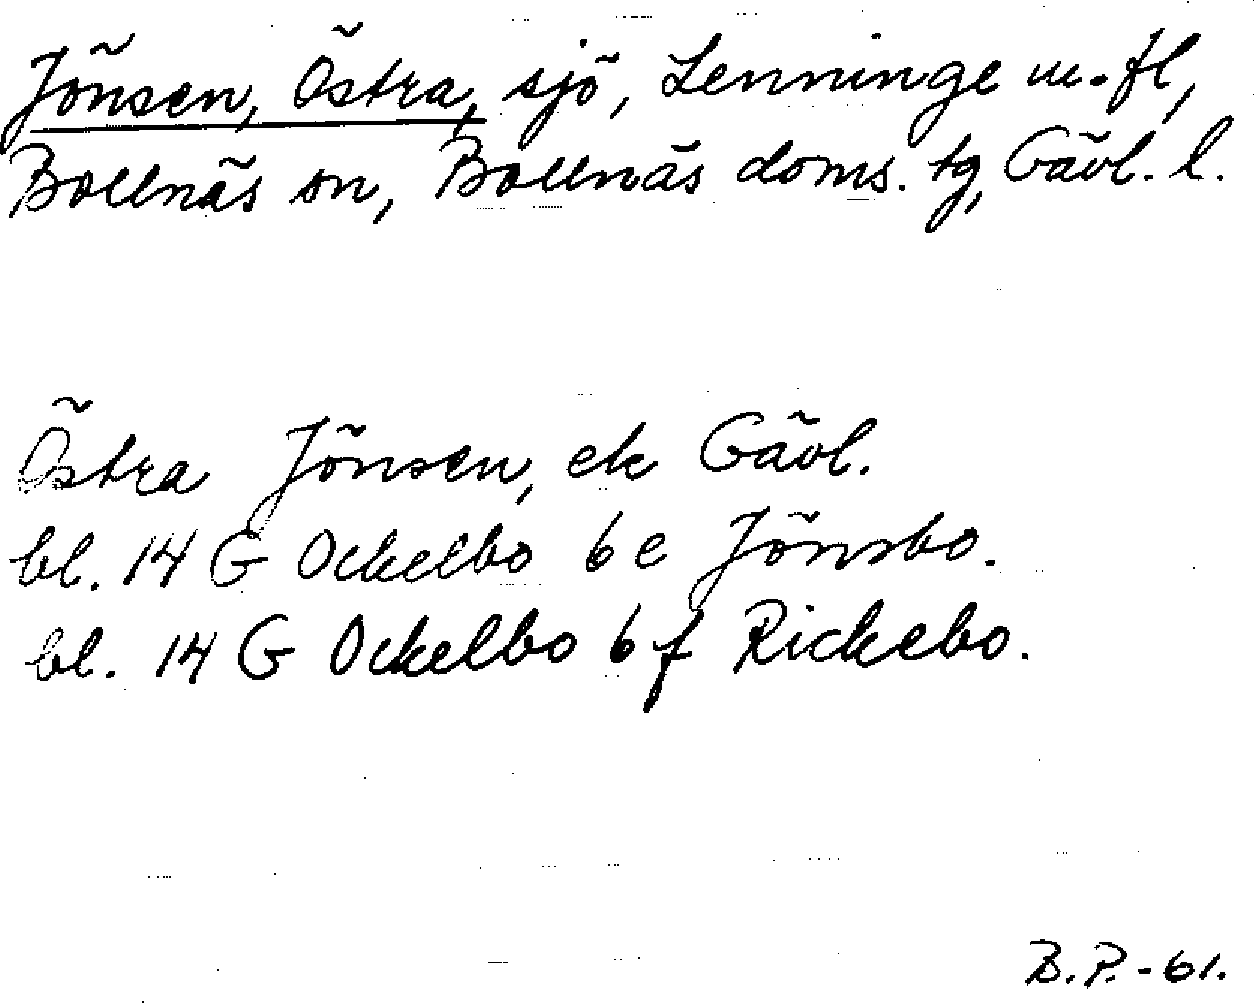 Jönsen, Östra, sjö, Lenninge m.fl,
Bollnäs sn, Bollnäs doms. tg, Gävl. l.
Östra Jönsen, ek Gävl.
bl. 14 G Ockelbo 6 e Jönsbo.
bl. 14 G Ockelbo 6 f Rickebo.
B.P.-61.